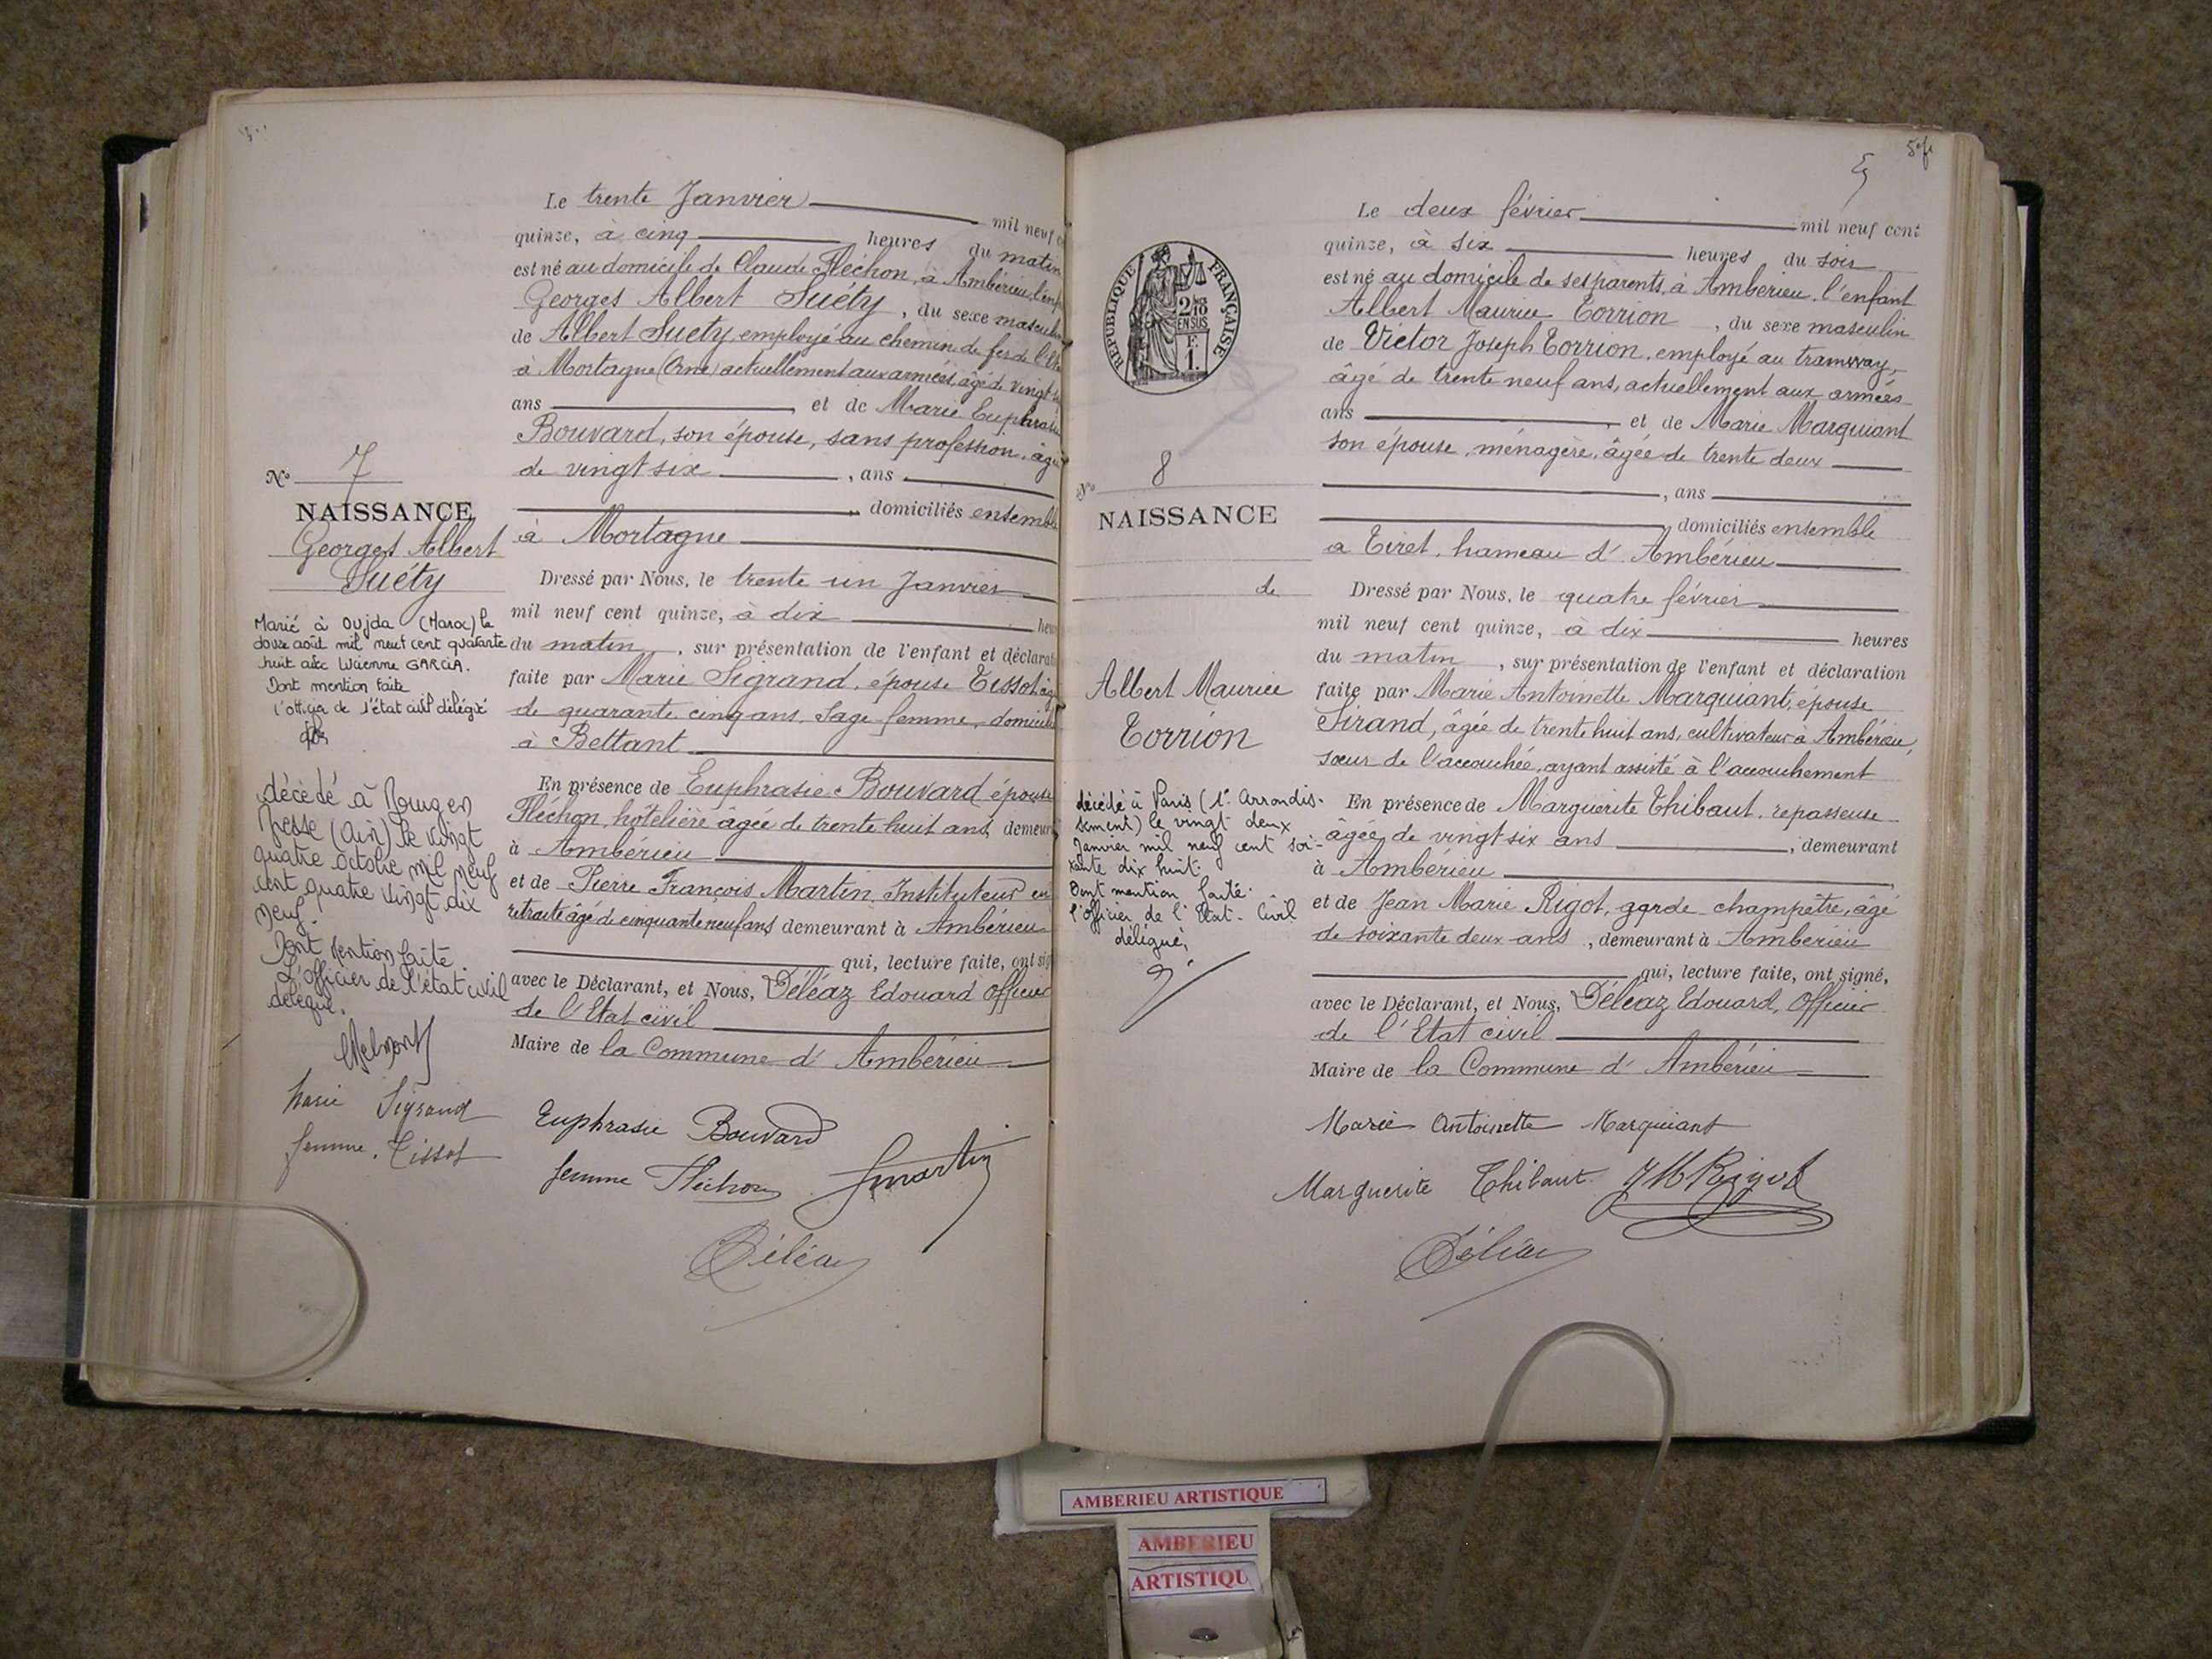 Le trente Janvier mil neuf
quinze, à cinq heures du matin
est né au domicile de Claude Fléchon, à Ambérieu, l'enf
Georges Albert Suéty, du sexe masculin
de Albert Suéty employé au chemin de fer de l'
à Mortagne (Orne) actuellement aux armées, âgé de vingt
ans et de Marie Euphrasie
Bouvard, son épouse, sans profession, âgé
de vingt six, ans
domiciliés ensemble
à Mortagne
Dressé par Nous, le trente un Janvier
mil neuf cent quinze, à dix heu
du matin, sur présentation de l'enfant et déclarat
faite par Marie Sigrand, épouse Tissot, âg
de quarante cinq ans, Sage-femme, domicili
à Bettant
En présence de Euphrasie Bouvard épouse
Fléchon, hôtelière âgée de trente huit ans, demeur
à Ambérieu
et de Pierre François Martin, Instituteur en
retraite âgé de cinquante neuf ans demeurant à Ambérieu
qui, lecture faite, ont sig
avec le Déclarant, et Nous, Déléaz Edouard Officier
de l'Etat civil
Maire de la Commune d'Ambérieu
No 7
NAISSANCE
Georges Albert
Suéty
Marié à Oujda (Maroc) le
douze août mil neuf cent quarante
huit avec Lucienne GARCIA.
Dont mention faite
l'officier de l'état civil délégué
décédé à Bourg en
Bresse (Ain) le vingt
quatre octobre mil neuf
cent quatre vingt dix
neuf.
Dont mention faite
L'officier de l'état civil
délégué.
Marie Sigrand
femme Tissot
Euphrasie Bouvard
femme Fléchon Martin
Déléaz
5
Le deux février mil neuf cent
quinze, à six heures du soir
est né au domicile de ses parents, à Ambérieu, l'enfant
Albert Maurice Torrion, du sexe masculin
de Victor Joseph Torrion, employé au tramway,
âgé de trente neuf ans, actuellement aux armées
ans et de Marie Marquiant
son épouse, ménagère, âgée de trente deux
, ans
domiciliés ensemble
à Tiret, hameau d'Ambérieu
Dressé par Nous, le quatre février
mil neuf cent quinze, à dix heures
du matin, sur présentation de l'enfant et déclaration
faite par Marie Antoinette Marquiant, épouse
Sirand, âgée de trente huit ans, cultivateur à Ambérieu,
sœur de l'accouchée, ayant assisté à l'accouchement
En présence de Marguerite Thibaut, repasseuse
âgée de vingt six ans, demeurant
à Ambérieu
et de Jean Marie Rigot, garde champêtre, âgé
de soixante deux ans, demeurant à Ambérieu
qui, lecture faite, ont signé,
avec le Déclarant, et Nous, Déléaz Edouard, Officier
de l'Etat civil
Maire de la Commune d'Ambérieu
RÉPUBLIQUE FRANÇAISE
2/10
EN SUS
F.
1.
No 8
NAISSANCE
de
Albert Maurice
Torrion
décédé à Paris (1er Arrondis-
sement) le vingt deux
Janvier mil neuf cent soi-
xante dix huit.
Dont mention faite.
l'officier de l'Etat-Civil
délégué,
Marie Antoinette Marquiant
Marguerite Thibaut JM Rigot
Déléaz
AMBERIEU ARTISTIQUE
AMBERIEU
ARTISTIQU